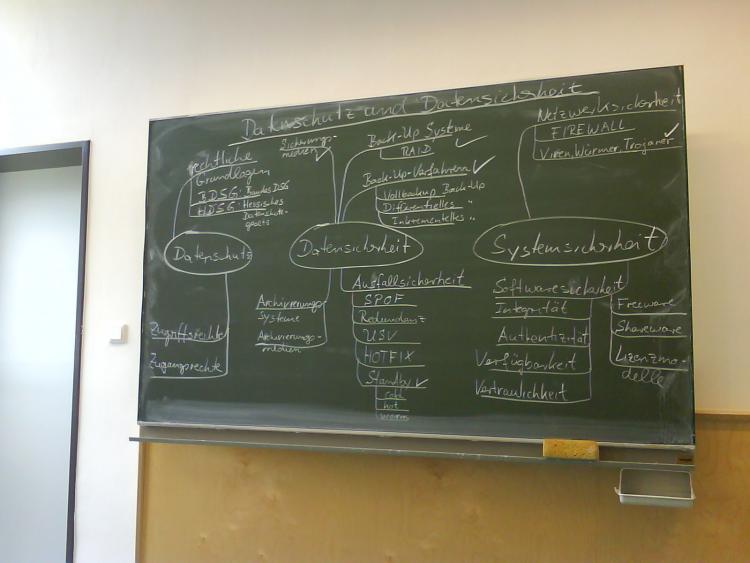 Datenschutz und Datensicherheit
rechtliche
Grundlagen
BDSG: Bundes DSG
HDSG: Hessisches
Datenschutz-
gesetz
Datenschutz
Zugriffsrechte
Zugangsrechte
Sicherungs-
medien ✓
Back-Up Systeme
RAID ✓
Back-Up-Verfahren ✓
Vollbackup Back-Up
Differentielles "
Inkrementelles "
Datensicherheit
Archivierungs
Systeme
Archivierungs-
medien
Ausfallsicherheit
SPOF
Redundanz
USV
HOTFIX
Standby ✓
cold
hot
warm
Netzwerksicherheit
FIREWALL
Viren, Würmer, Trojaner ✓
Systemsicherheit
Softwaresicherheit
Integrität
Authentizität
Verfügbarkeit
Vertraulichkeit
Freeware
Shareware
Lizenzmo-
delle